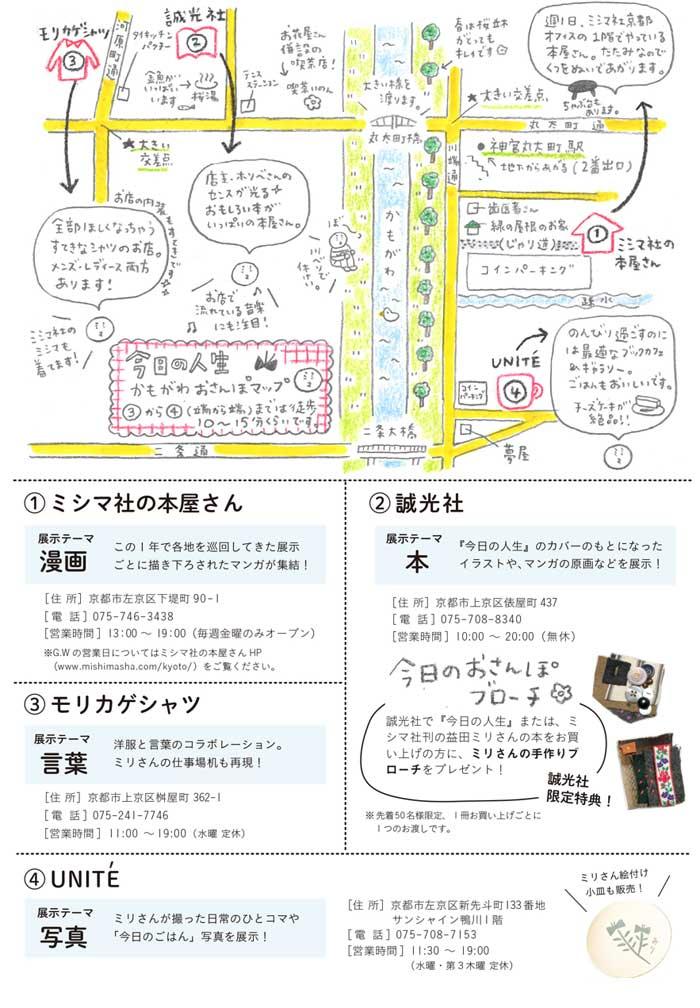 モリカゲシャツ
③
河原町通
ダイキッチン
パクチー
誠光社
②
金魚が
いっぱい
います
桜湯
テニス
ステーション
お花屋さん
併設の
喫茶店!
喫茶いのん
春は桜並木
がとっても
キレイです
大きい橋を
渡ります。
週1日、ミシマ社京都
オフィスの1階でやっている
本屋さん。たたみなので
くつをぬいであがります。
ちゃぶ台も
あります。
★大きい交差点
丸太町通
丸太町橋
川端通
★大きい
交差点
●神宮丸太町駅
地下からあがる(2番出口)
お店の内装もすてきです
全部ほしくなっちゃう
すてきなシャツのお店。
メンズ・レディース両方
あります!
店主・ホリベさんの
センスが光る
おもしろい本が
いっぱいの本屋さん。
かもがわ
歯医者さん
緑の屋根のお家
(じゃり道)
①
ミシマ社の
本屋さん
コインパーキング
疏水
川べりで
休けい。
お店で
流れている音楽
にも注目!
ミシマ社の
ミシマも
着てます!
今日の人生
かもがわおさんぽマップ
③から④(端から端)までは徒歩
10〜15分くらいです。
UNITÉ
④
コイン
パーキング
のんびり過ごすのに
は最適なブックカフェ
&ギャラリー。
ごはんもおいしいです。
チーズケーキが
絶品!!
二条通
二条大橋
夢屋
①ミシマ社の本屋さん
展示テーマ
漫画
この1年で各地を巡回してきた展示
ごとに描き下ろされたマンガが集結!
[住 所] 京都市左京区下堤町90-1
[電 話] 075-746-3438
[営業時間] 13:00 〜 19:00(毎週金曜のみオープン)
※G.Wの営業日についてはミシマ社の本屋さんHP
(www.mishimasha.com/kyoto/)をご覧ください。
②誠光社
展示テーマ
本
『今日の人生』のカバーのもとになった
イラストや、マンガの原画などを展示!
[住 所] 京都市上京区俵屋町437
[電 話] 075-708-8340
[営業時間] 10:00 〜 20:00(無休)
今日のおさんぽ
ブローチ
誠光社で『今日の人生』または、ミ
シマ社刊の益田ミリさんの本をお買
い上げの方に、ミリさんの手作りブ
ローチをプレゼント!
誠光社
限定特典!
※先着50名様限定、1冊お買い上げごとに
1つのお渡しです。
③モリカゲシャツ
展示テーマ
言葉
洋服と言葉のコラボレーション。
ミリさんの仕事場机も再現!
[住 所] 京都市上京区桝屋町362-1
[電 話] 075-241-7746
[営業時間] 11:00 〜19:00(水曜 定休)
④UNITÉ
展示テーマ
写真
ミリさんが撮った日常のひとコマや
「今日のごはん」写真を展示!
[住 所] 京都市左京区新先斗町133番地
サンシャイン鴨川1階
[電 話] 075-708-7153
[営業時間] 11:30 〜 19:00
(水曜・第3木曜 定休)
ミリさん絵付け
小皿も販売!